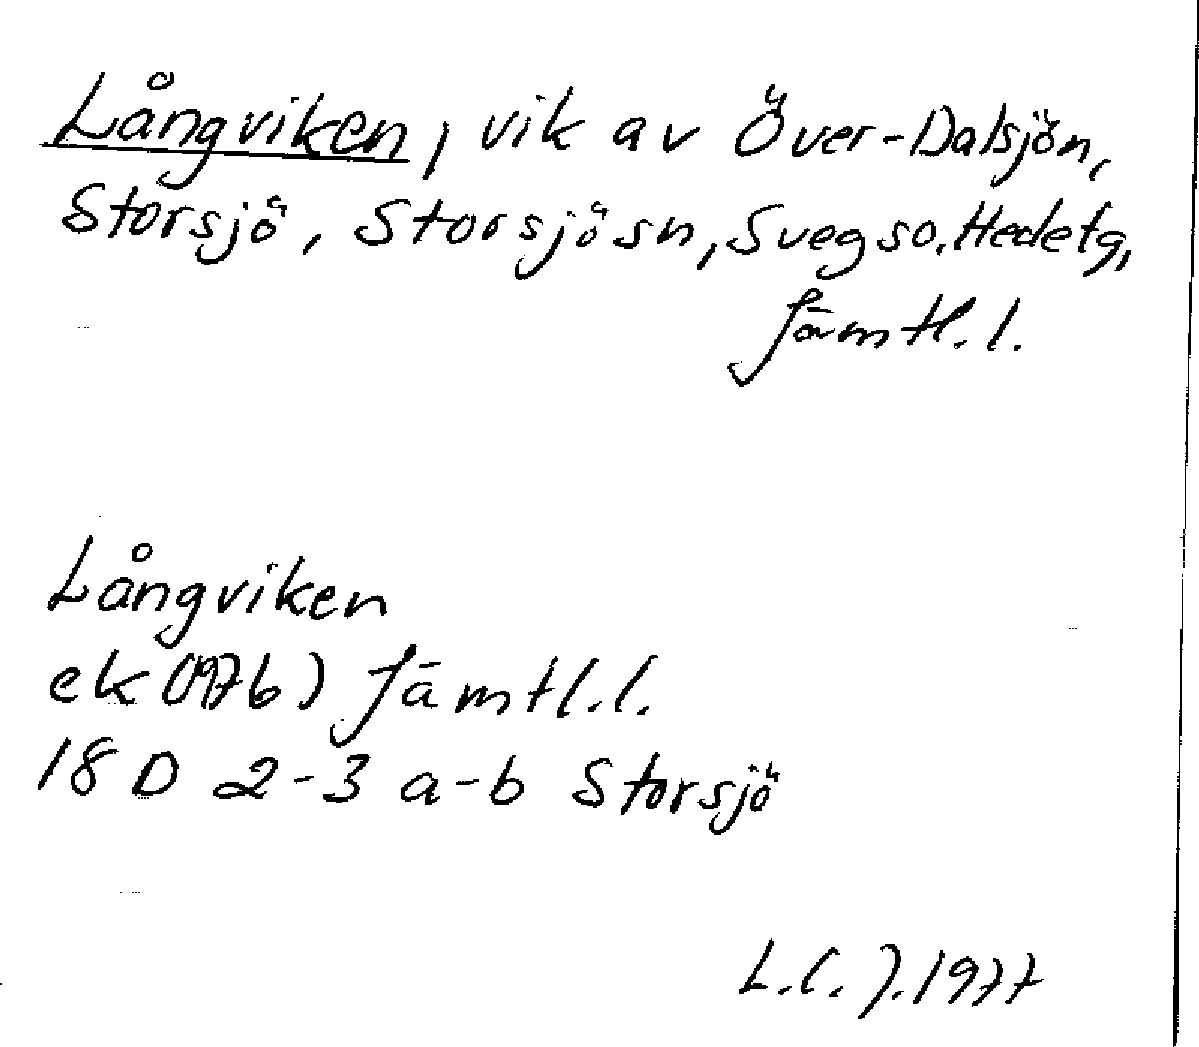 Långviken, vik av Över-Dalsjön,
Storsjö, Storsjö sn, Svegs so. Hede tg,
Jämtl. l.
Långviken
ek (1976) Jämtl. l.
18 D 2-3 a-b Storsjö
L.C. J. 1977